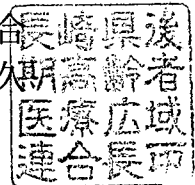 合
久
長崎県後
期高齢者
医療広域
連合長印